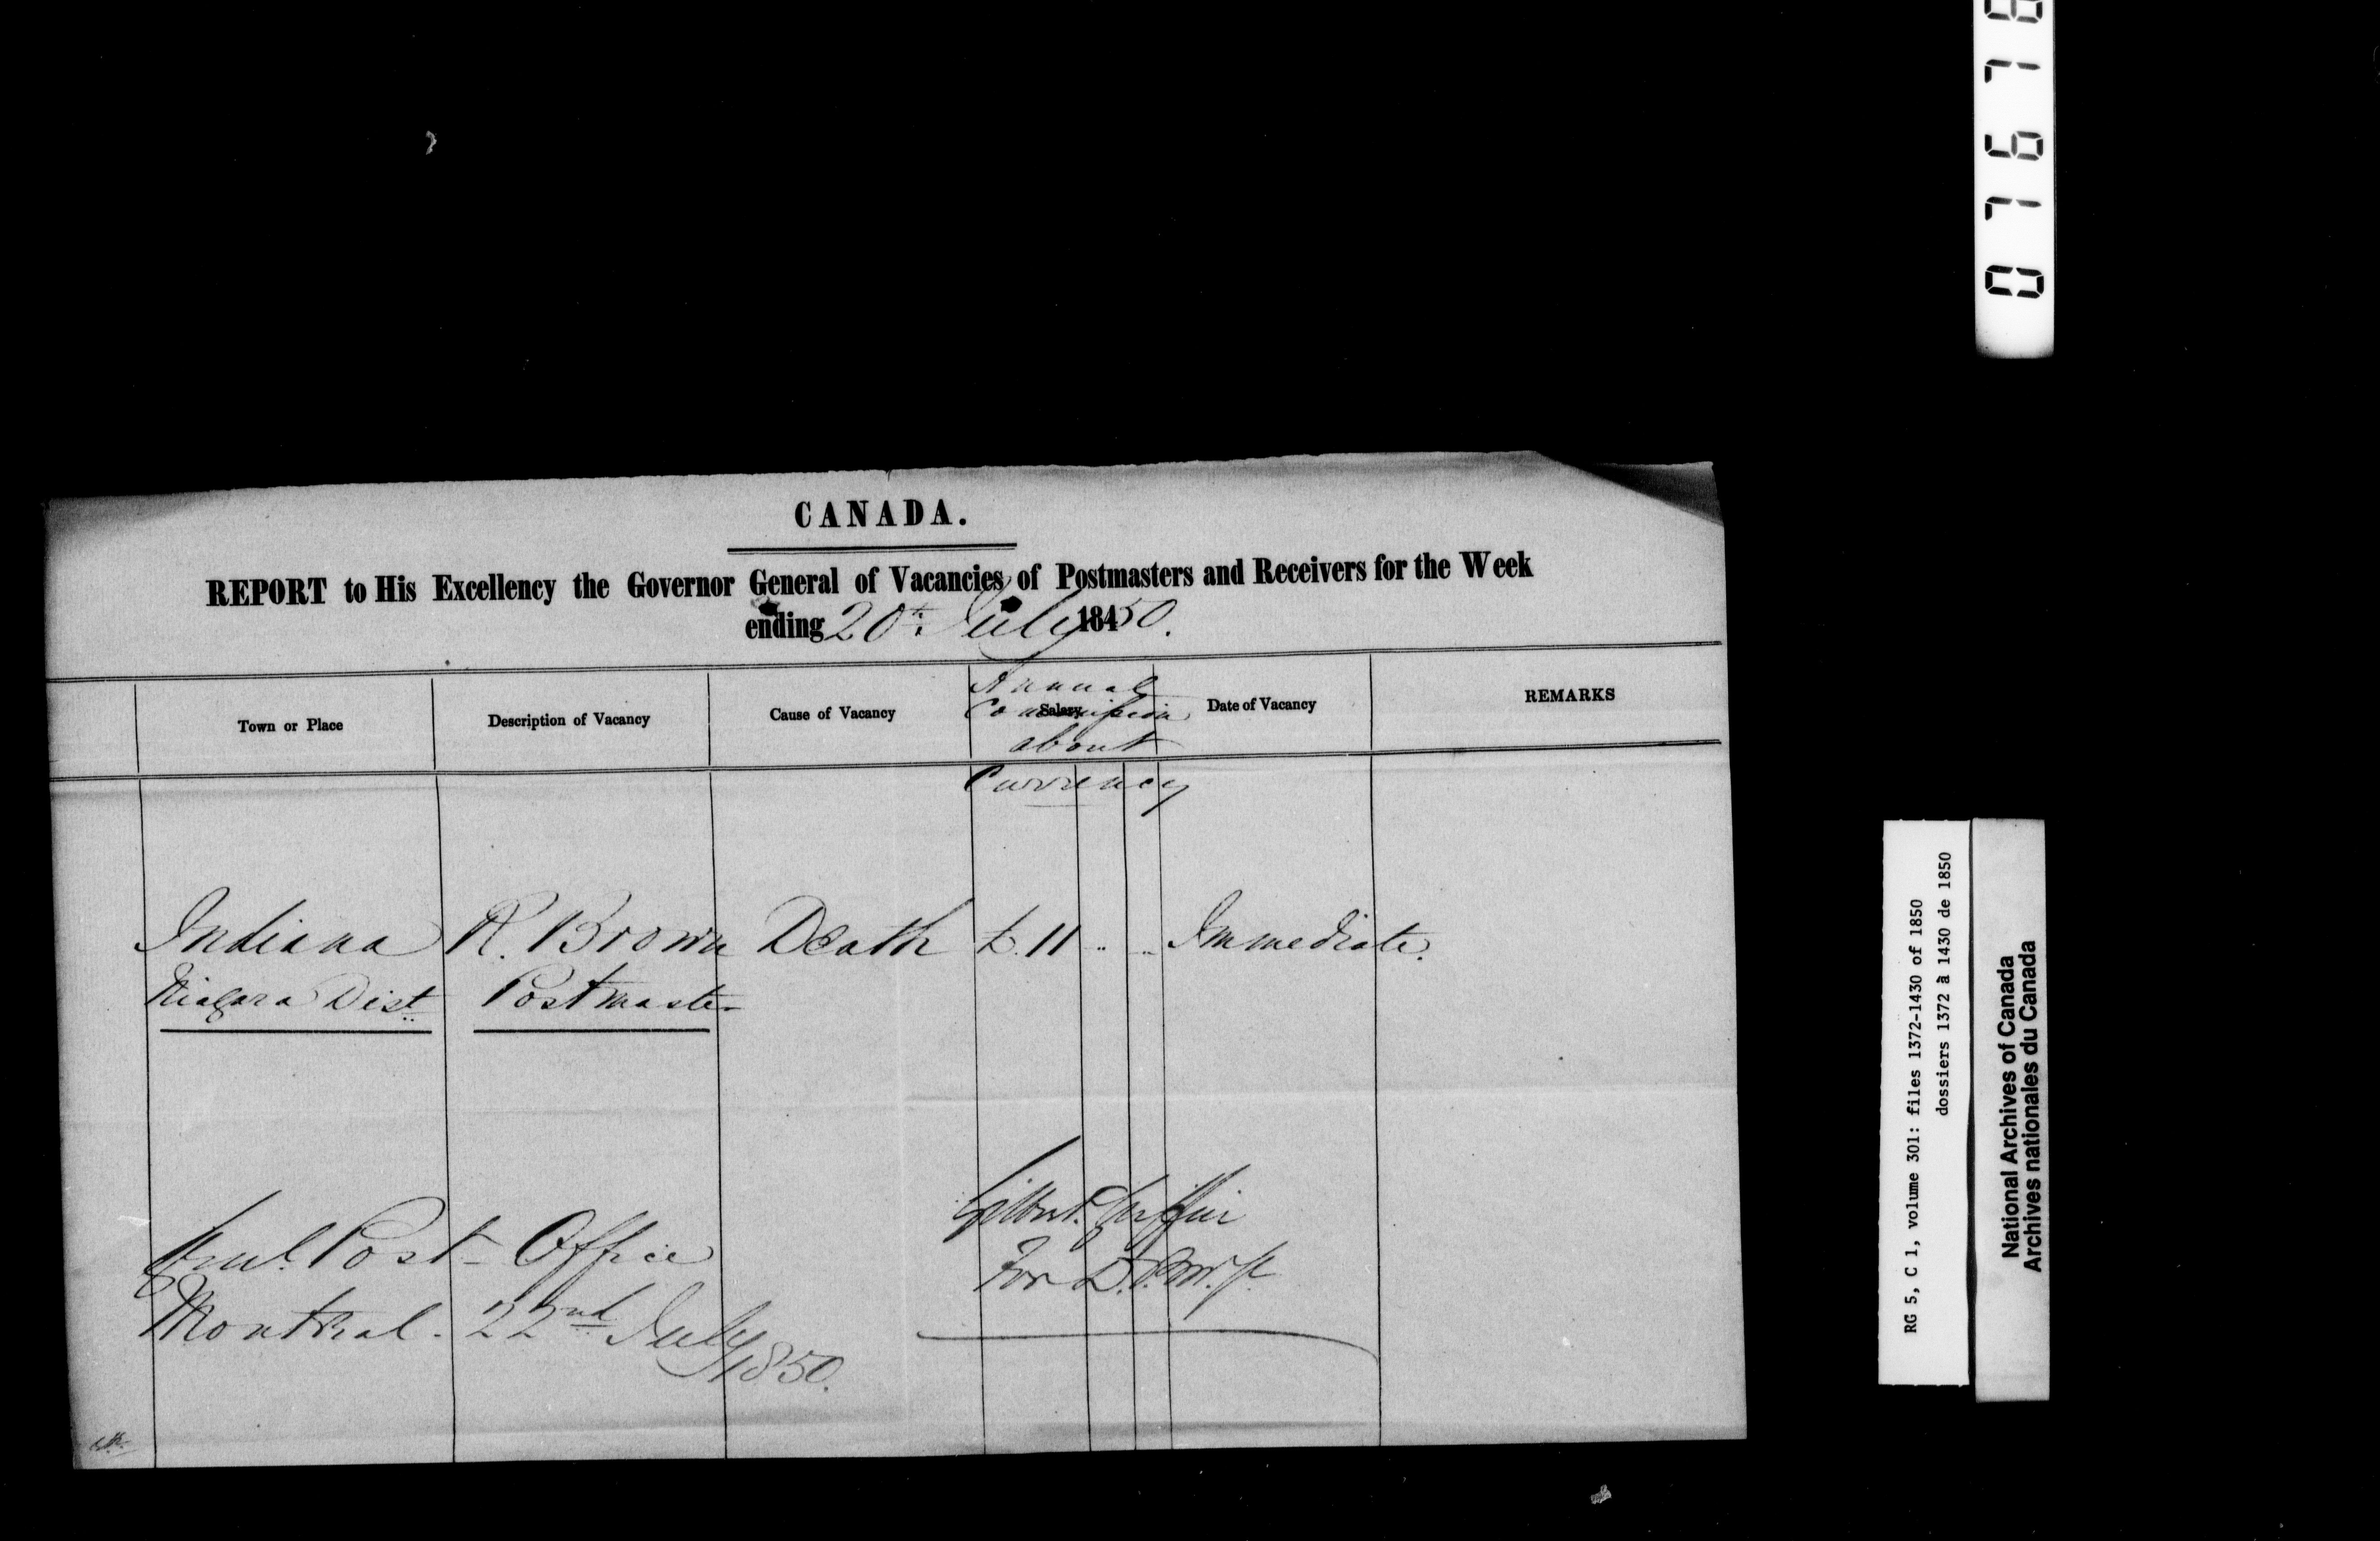 CANADA.
REPORT to His Excellency the Governor General of Vacancies of Postmasters and Receivers for the Week
ending 20th July 18450.
Town or Place
Description of Vacancy
Cause of Vacancy
Salary
Annual
Commission
about
Currency
Date of Vacancy
REMARKS
Indiana R. Brown Death £11 " " Immediate.
Niagara Dist. Postmaster
Genl. Post Office
Montreal. 22nd July
1850.
Griffin
For D.P.M.G.
07678
RG 5, C 1, volume 301: files 1372-1430 of 1850
dossiers 1372 à 1430 de 1850
National Archives of Canada
Archives nationales du Canada